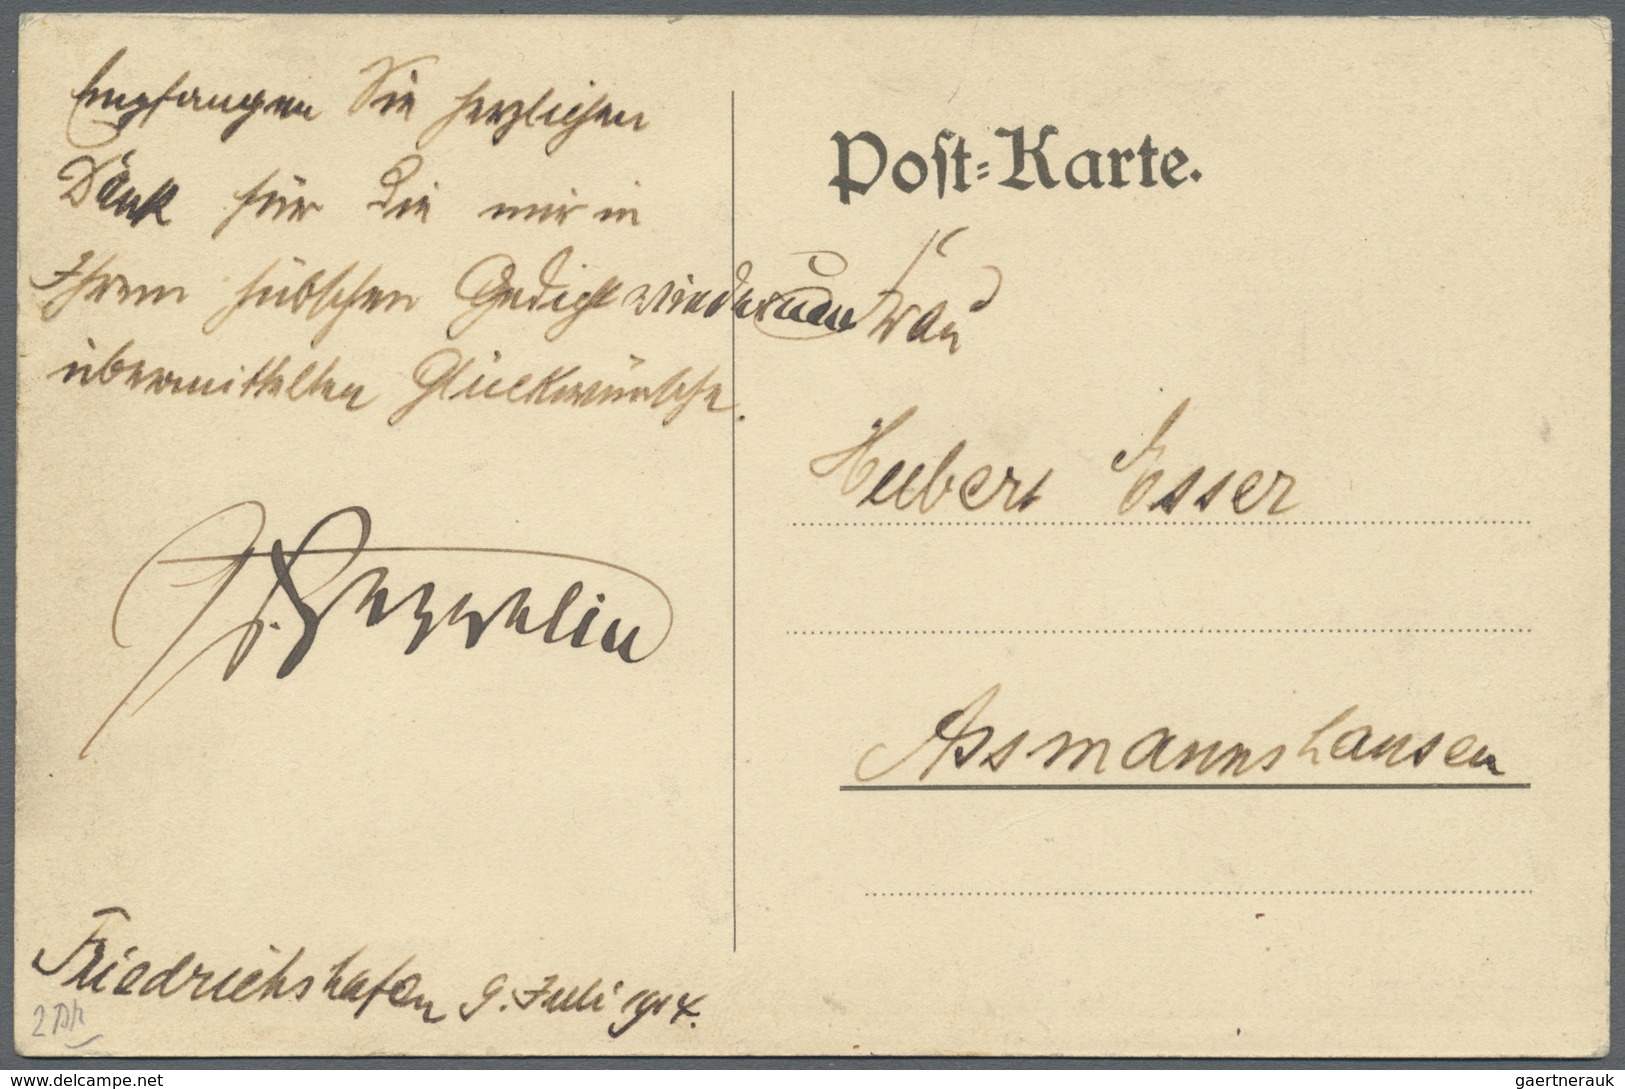 Empfangen Sie herzlichen
Dank für die mir in
Ihrem hübschen Gedicht wiederum
übermittelten Glückwünsche.
Zeppelin
Friedrichshafen 9. Juli 1914.
Post=Karte.
Frau
Hubert Esser
Assmannshausen
gaertnerauk
www.delcampe.net